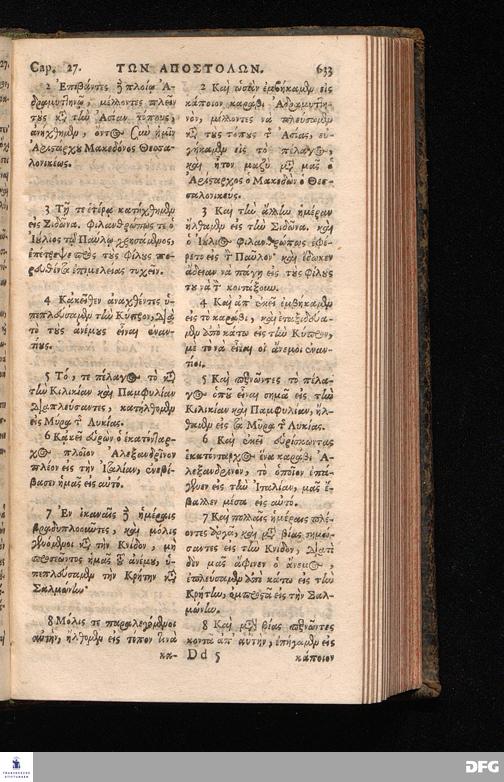 Cap. 27. ΤΩΝ ΑΠΟΣΤΟΛΩΝ. 633
2 Ἐπιβάντες δὲ πλοίῳ Ἀ-
δραμυττηνῷ, μέλλοντες πλεῖν
τοὺς κατὰ τὴν Ἀσίαν τόπους,
ἀνήχθημεν, ὄντος σὺν ἡμῖν
Ἀριστάρχου Μακεδόνος Θεσσα-
λονικέως.
3 Τῇ τε ἑτέρᾳ κατήχθημεν
εἰς Σιδῶνα. φιλανθρώπως τε ὁ
Ἰούλιος τῷ Παύλῳ χρησάμενος,
ἐπέτρεψε πρὸς τοὺς φίλους πο-
ρευθέντα ἐπιμελείας τυχεῖν.
4 Κἀκεῖθεν ἀναχθέντες ὑ-
πεπλεύσαμεν τὴν Κύπρον, διὰ
τὸ τοὺς ἀνέμους εἶναι ἐναν-
τίους.
5 Τό, τε πέλαγος τὸ κατὰ
τὴν Κιλικίαν καὶ Παμφυλίαν
διαπλεύσαντες, κατήλθομεν
εἰς Μύρα τῆς Λυκίας.
6 Κᾀκεῖ εὑρὼν ὁ ἑκατόνταρ-
χος πλοῖον Ἀλεξανδρῖνον
πλέον εἰς τὴν Ἰταλίαν, ἐνεβί-
βασεν ἡμᾶς εἰς αὐτό.
7 Ἐν ἱκαναῖς δὲ ἡμέραις
βραδυπλοοῦντες, καὶ μόλις
γενόμενοι κατὰ τὴν Κνίδον, μὴ
προσεῶντος ἡμᾶς τοῦ ἀνέμου, ὑ-
πεπλεύσαμεν τὴν Κρήτην κατὰ
Σαλμώνην
8 Μόλις τε παραλεγόμενοι
αὐτὴν, ἤλθομεν εἰς τόπον τινὰ
κα-
2 Καὶ ὡσὰν ἐμβήκαμεν εἰς
κάποιον καράβι Ἀδραμυττη-
νὸν, μέλλοντες νὰ πλεύσωμεν
κατὰ τοὺς τόπους τῆς Ἀσίας, εὐ-
γήκαμεν εἰς τὸ πέλαγος,
καὶ ἦτον μαζὺ μὲ μᾶς ὁ
Ἀρίσταρχος ὁ Μακεδὼν ὁ Θεσ-
σαλονικεύς.
3 Καὶ τὴν ἄλλην ἡμέραν
ἤλθαμεν εἰς τὴν Σιδῶνα. καὶ
ὁ Ἰούλιος φιλανθρώπως ἐφέ-
ρετο εἰς τὸν Παῦλον· καὶ ἔδωκεν
ἄδειαν νὰ πάγῃ εἰς τοὺς φίλους
του νὰ τὸν κοιτάξουν.
4 Καὶ ἀπ' ἐκεῖ ἐμβήκαμεν
εἰς τὸ καράβι, καὶ ἐταξιδεύσα-
μεν ἀπὸ κάτω εἰς τὴν Κύπρον,
μὲ τὸ νὰ εἶναι οἱ ἄνεμοι ἐναν-
τίοι.
5 Καὶ περνῶντες τὸ πέλα-
γος ὁποῦ εἶναι σημὰ εἰς τὴν
Κιλικίαν καὶ Παμφυλίαν, ἤλ-
θαμεν εἰς τὰ Μύρα τῆς Λυκίας.
6 Καὶ ἐκεῖ εὑρίσκωντας
ἑκατόνταρχος ἕνα καράβι Ἀ-
λεξανδρινὸν, τὸ ὁποῖον ἐπή-
γενεν εἰς τὴν Ἰταλίαν, μᾶς ἔ-
βαλλεν μέσα εἰς αὐτό.
7 Καὶ πολλαῖς ἡμέραις πλέ-
οντες ἀργὰ, καὶ μετὰ βίας σιμώ-
σαντες εἰς τὴν Κνίδον, διατὶ
δὲν μᾶς ἄφινεν ὁ ἄνεμος,
ἐπλεύσαμεν ἀπὸ κάτω εἰς τὴν
Κρήτην, ὀμπροστὰ εἰς τὴν Σαλ-
μώνην.
8 Καὶ μετὰ βίας περνῶντες
κοντὰ ἀπ' αὐτὴν, ἐπήγαμεν εἰς
Dd 5 κάποιον
DFG